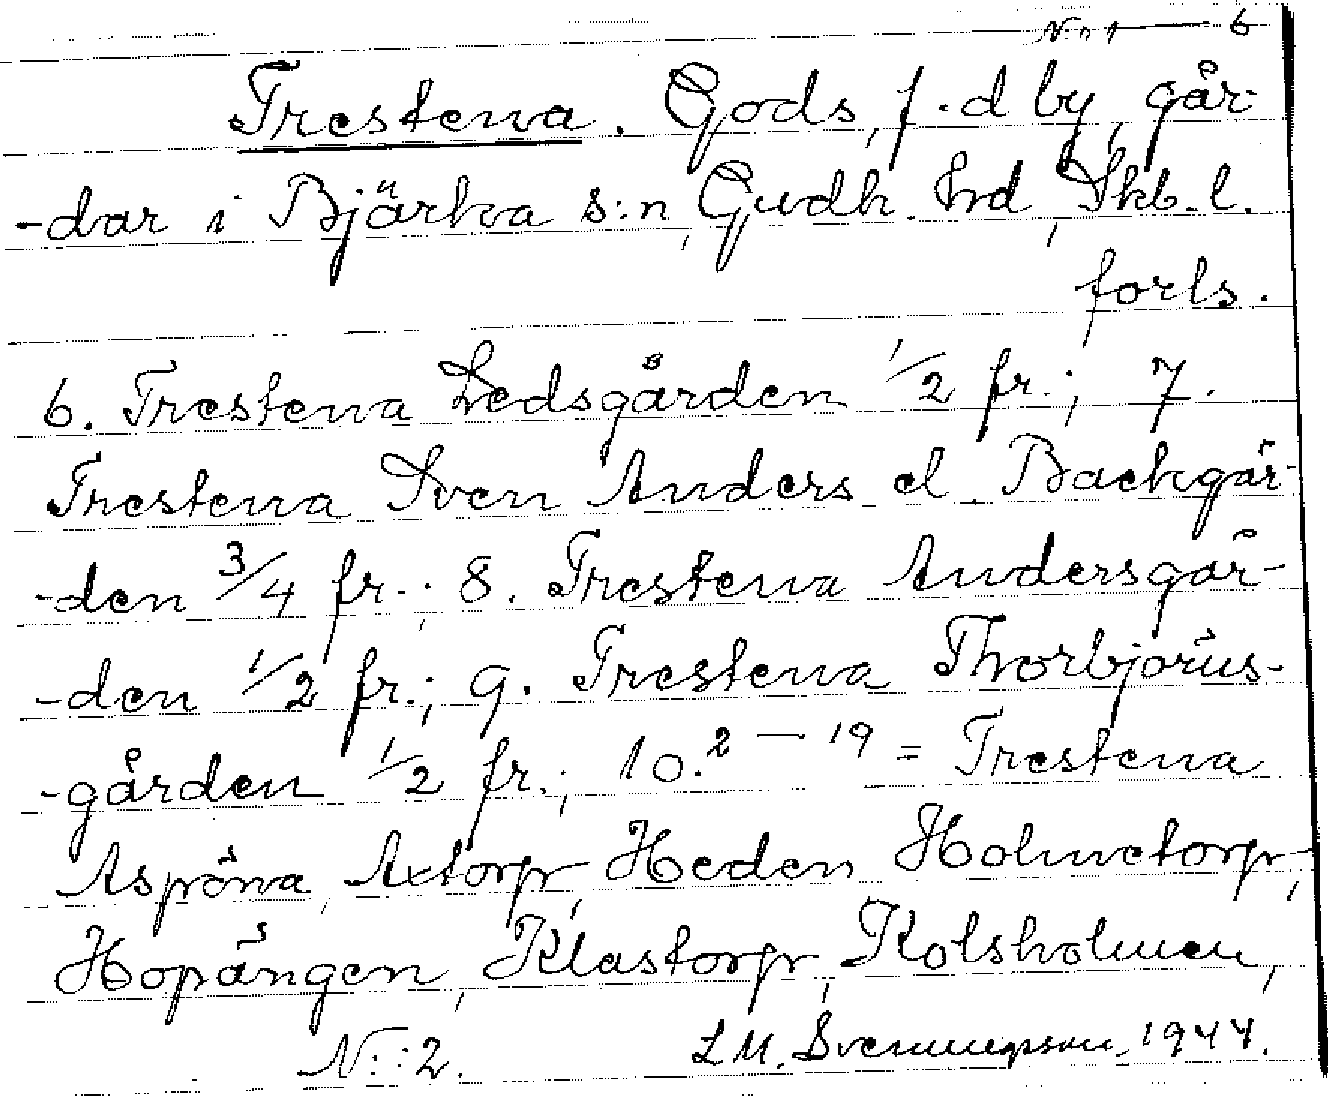 N:o 1 — 6
Trestena. Gods, f.d by, går-
-dar i Bjärka s:n, Gudh. hd, Skb. l.
forts.
6. Trestena Ledsgården 1/2 fr.; 7.
Trestena Sven Anders el. Backgår-
-den 3/4 fr.; 8. Trestena Andersgår-
-den 1/2 fr.; 9. Trestena Thorbjörns-
-gården 1/2 fr.; 10.2 — 19 = Trestena
Aspröna, Axtorp, Heden, Holmetorp,
Hopängen, Klastorp, Kolsholmen,
N:2. L M. Svenungsson, 1944.